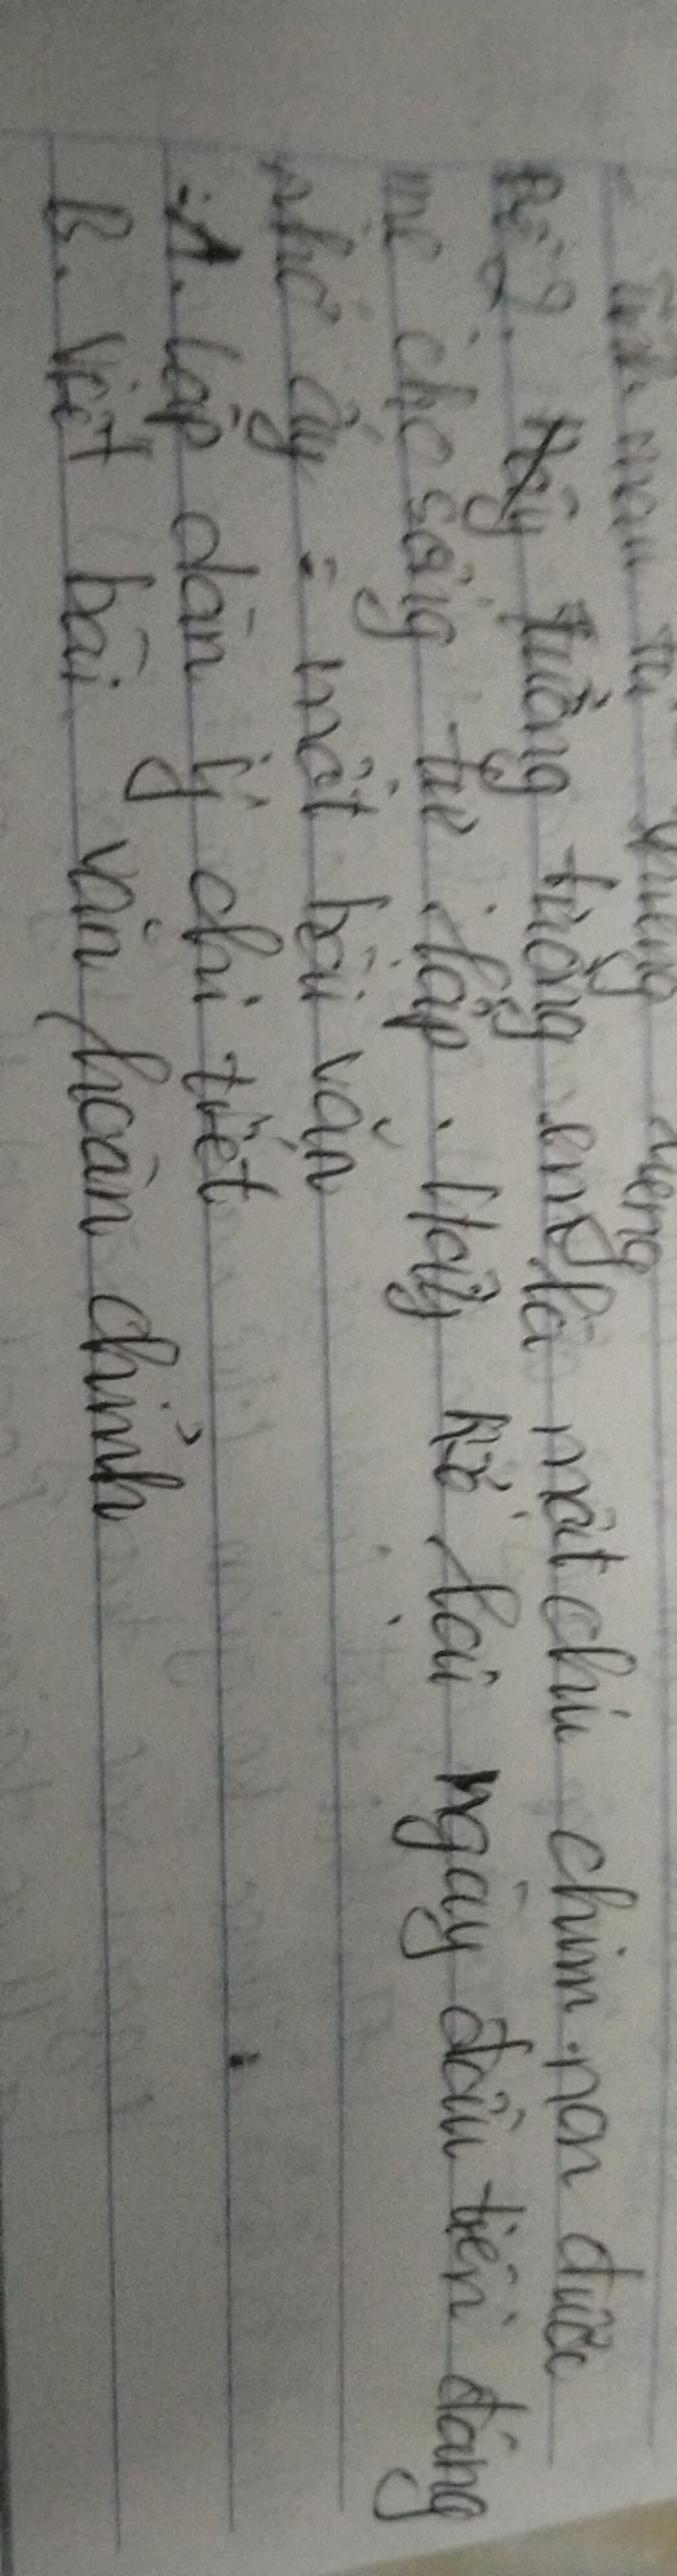 Bài 2. Hãy tưởng tượng em là một chú chim non được
mẹ cho sống tự lập. Hãy kể lại ngày đầu tiên đáng
nhớ ấy = một bài văn
A. lập dàn ý chi tiết
B. Viết bài văn hoàn chỉnh